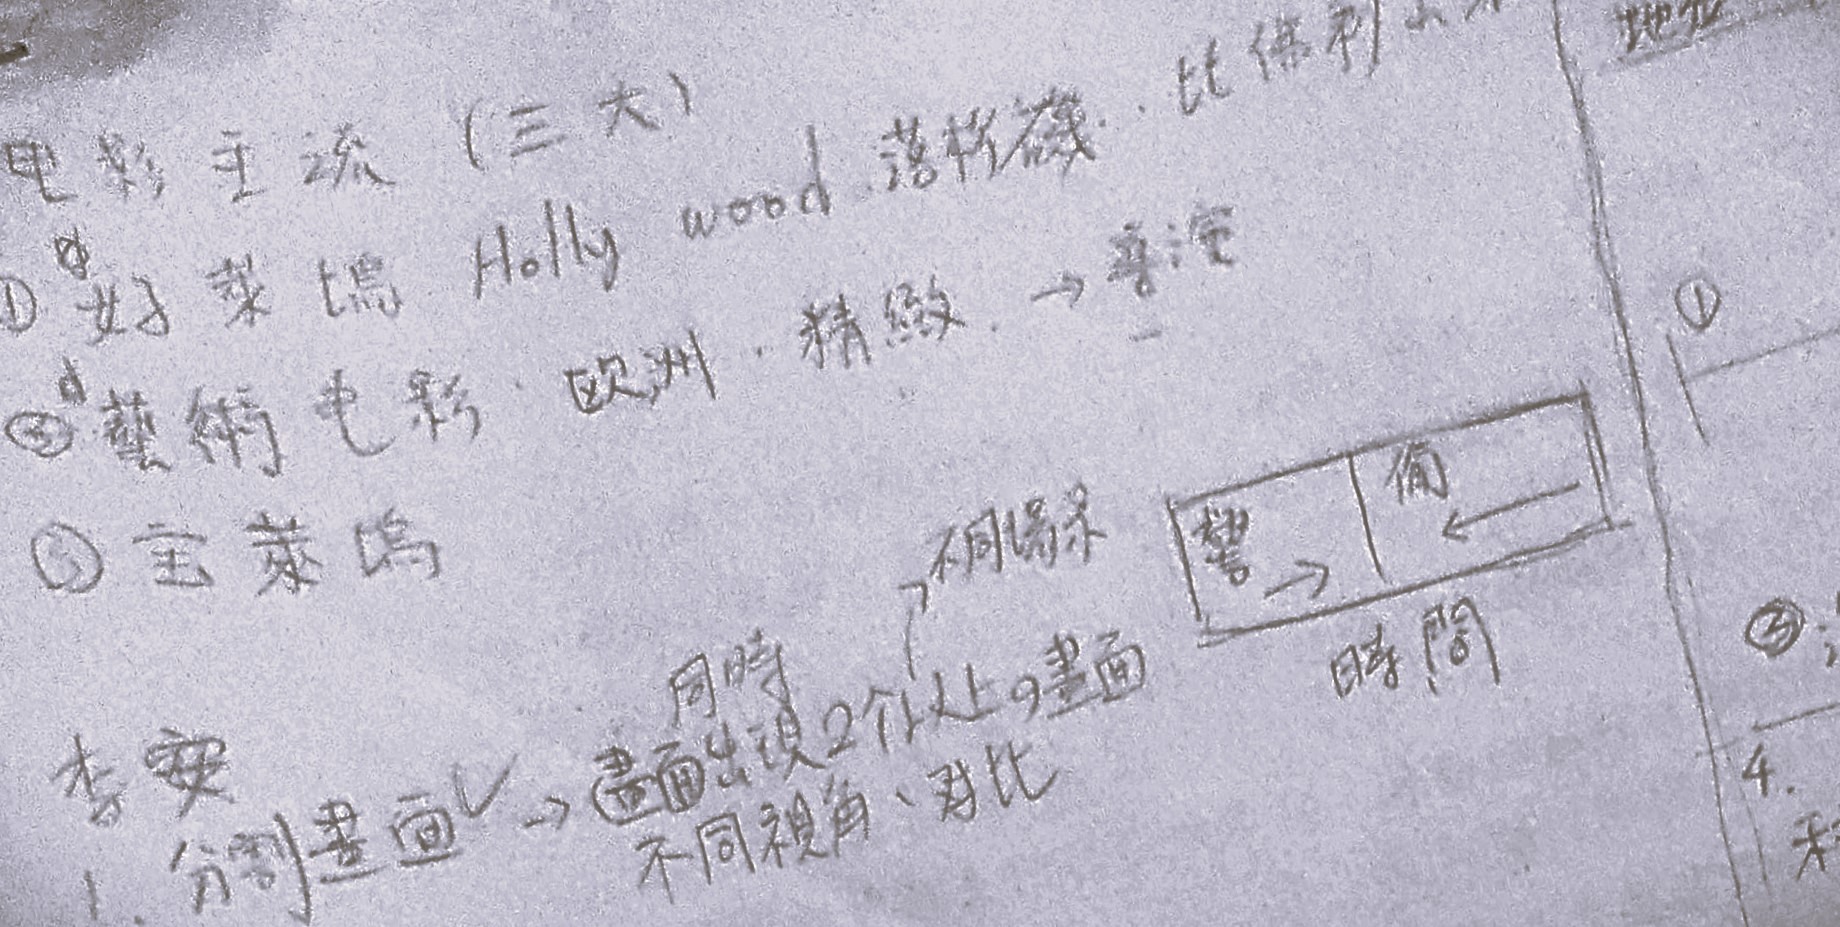 电影主流(三大)
① 好萊塢 Holly wood 洛杉磯.比佛利山
② 藝術电影.欧洲.精緻.→
③ 宝萊塢
不同場景
警 → 偷 ←
時間
李安
同時
1. 分割畫面✓→畫面出現2个以上的畫面
不同視角、对比
①
③
4.